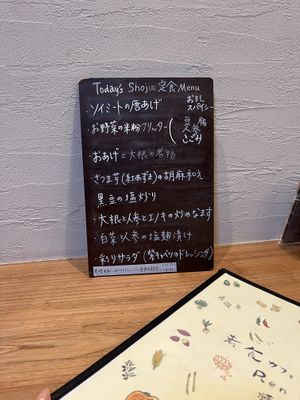 Today's Shojin 定食 Menu
・ソイミートの唐あげ おろし スパイシー
・お野菜の米粉フリッター 豆腐 人参 こごみ
・おあげと大根の巻物
・さつま芋(紅あずま)の胡麻和え
・黒豆の塩炒り
・大根と人参とエノキの炒めなます
・白菜と人参の塩麹漬け
・彩りサラダ (紫キャベツのドレッシング)
素食カフェ